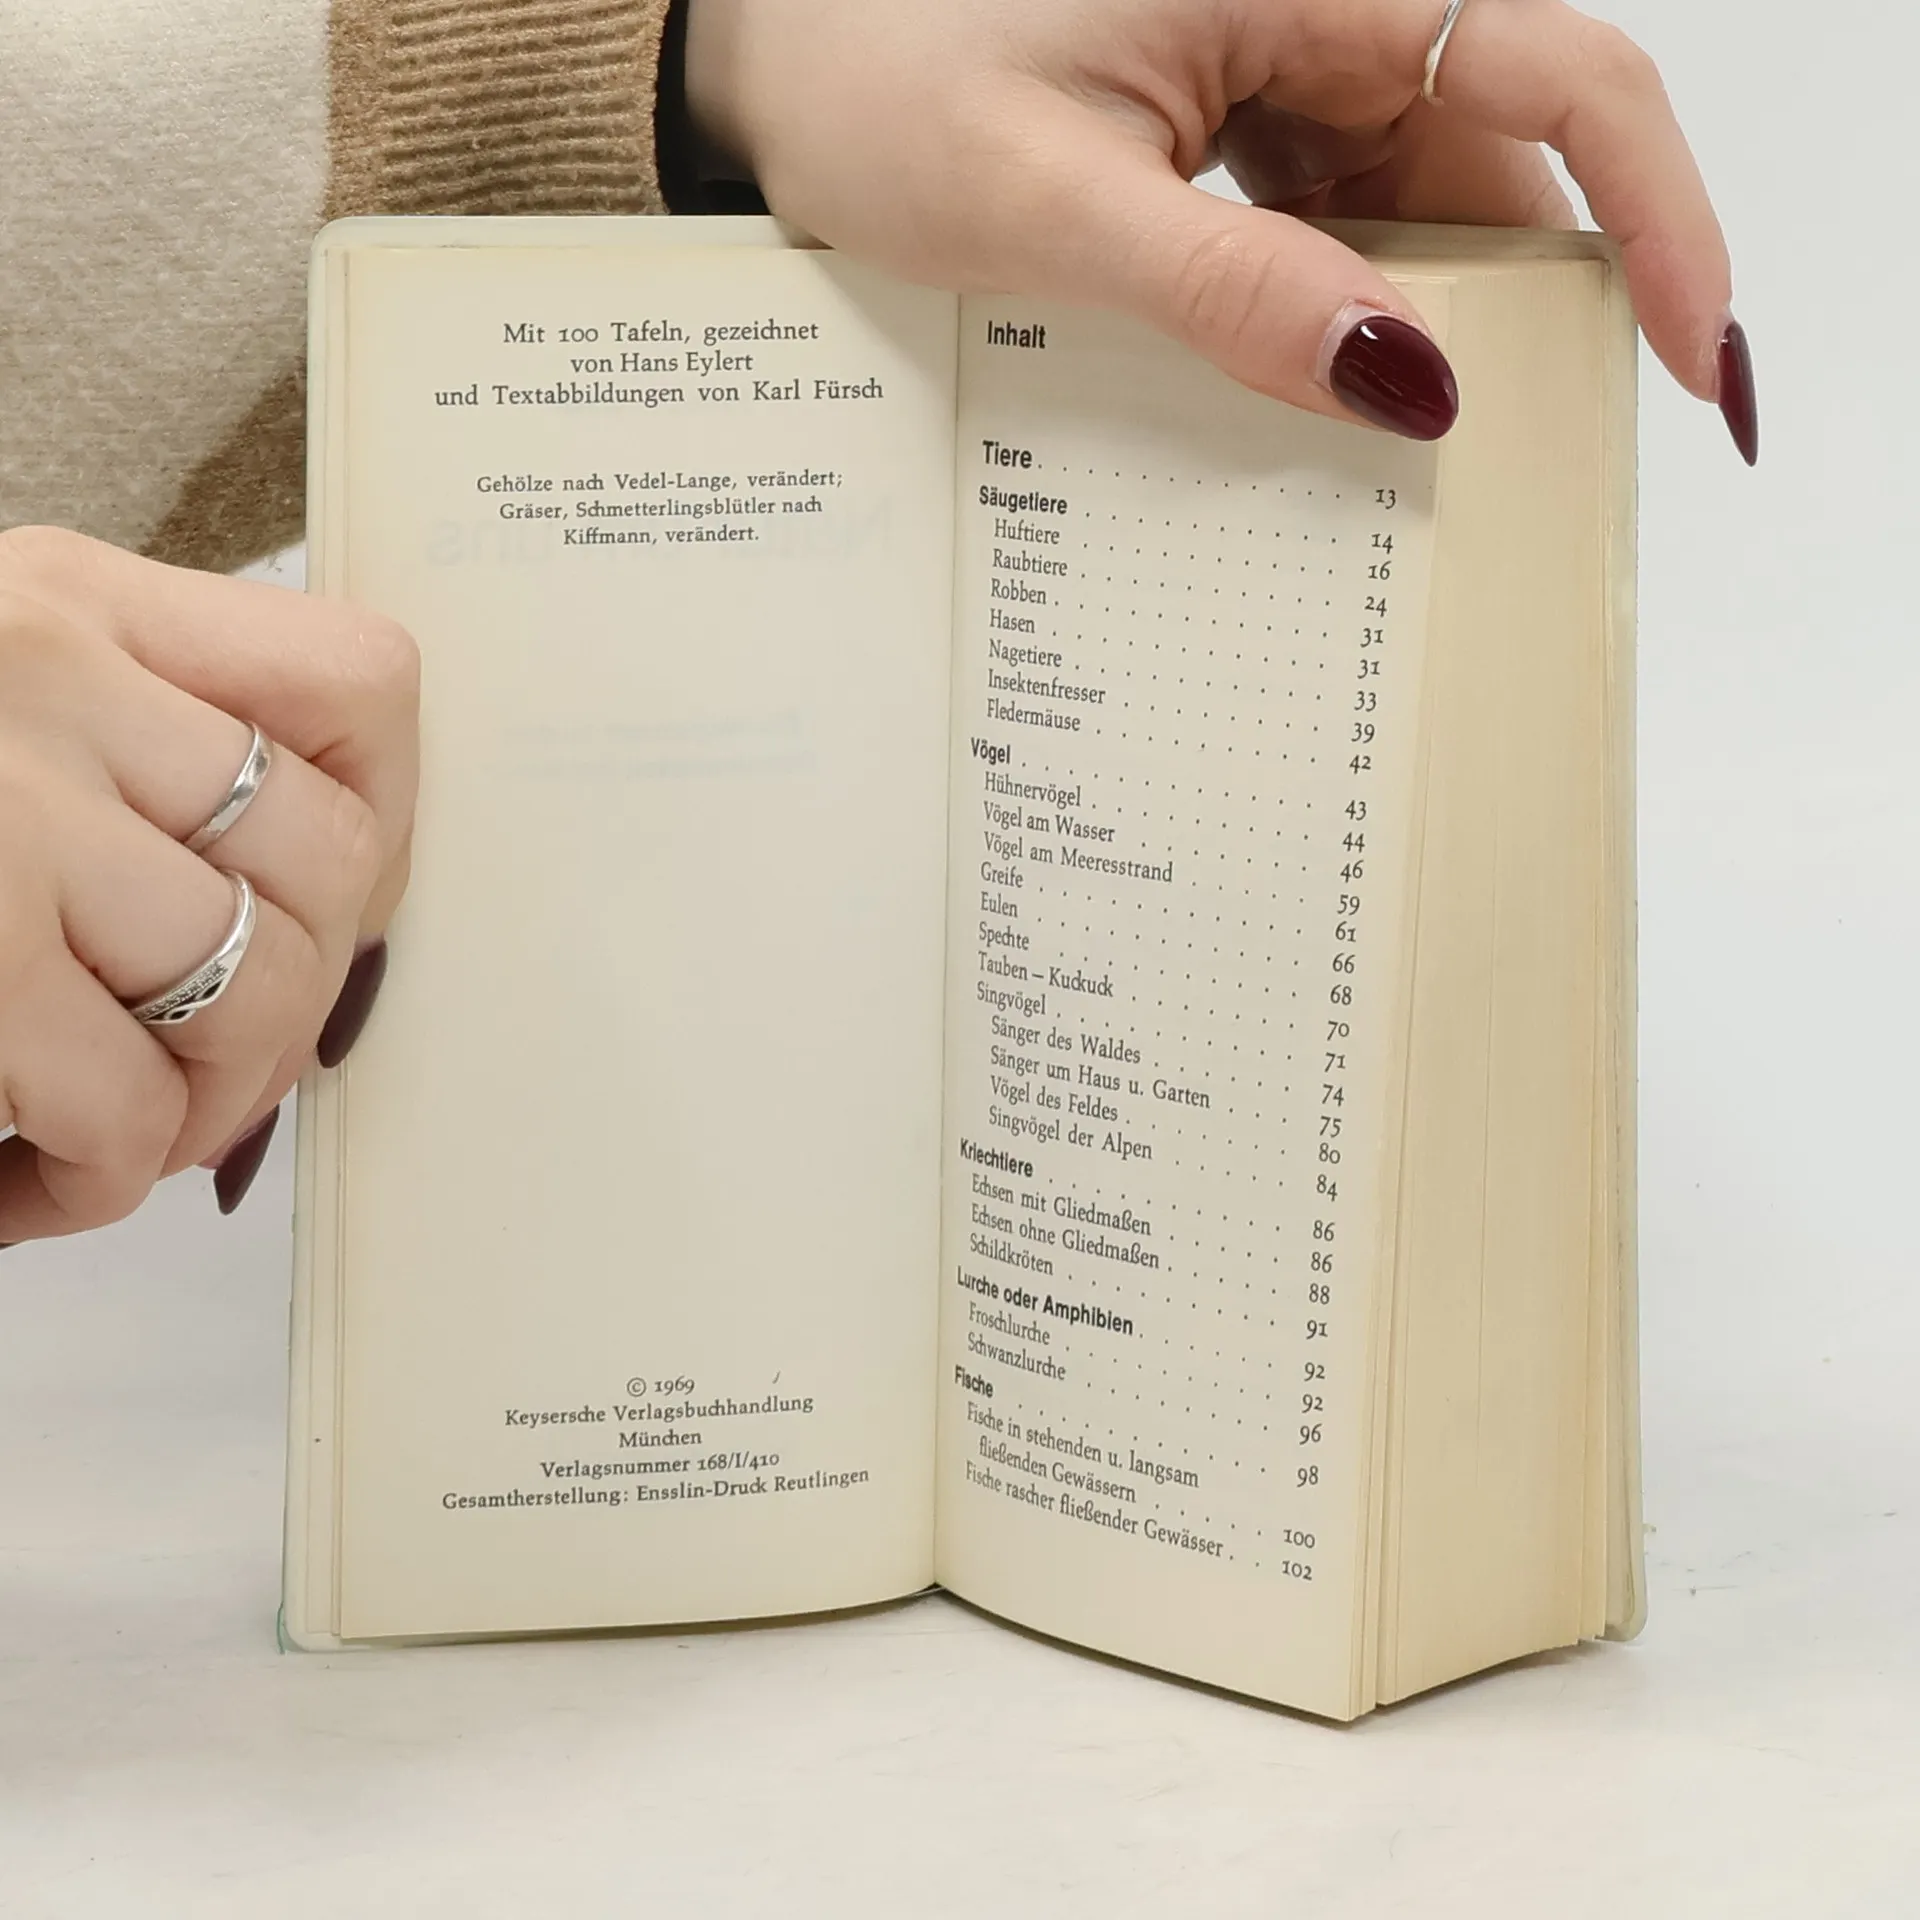 Mit 100 Tafeln, gezeichnet
von Hans Eylert
und Textabbildungen von Karl Fürsch
Gehölze nach Vedel-Lange, verändert;
Gräser, Schmetterlingsblütler nach
Kiffmann, verändert.
© 1969
Keysersche Verlagsbuchhandlung
München
Verlagsnummer 168/I/410
Gesamtherstellung: Ensslin-Druck Reutlingen
Inhalt
Tiere . . . . . . . . . . . . 13
Säugetiere . . . . . . . . . . 14
Huftiere . . . . . . . . . . 16
Raubtiere . . . . . . . . . . 24
Robben . . . . . . . . . . . 31
Hasen . . . . . . . . . . . 31
Nagetiere . . . . . . . . . . 33
Insektenfresser . . . . . . . . 39
Fledermäuse . . . . . . . . . 42
Vögel . . . . . . . . . . . . 43
Hühnervögel . . . . . . . . . 44
Vögel am Wasser . . . . . . . 46
Vögel am Meeresstrand . . . . . 59
Greife . . . . . . . . . . . 61
Eulen . . . . . . . . . . . 66
Spechte . . . . . . . . . . 68
Tauben – Kuckuck . . . . . . . 70
Singvögel . . . . . . . . . . 71
Sänger des Waldes . . . . . . 74
Sänger um Haus u. Garten . . . 75
Vögel des Feldes . . . . . . . 80
Singvögel der Alpen . . . . . 84
Kriechtiere . . . . . . . . . . 86
Echsen mit Gliedmaßen . . . . . 86
Echsen ohne Gliedmaßen . . . . . 88
Schildkröten . . . . . . . . . 91
Lurche oder Amphibien . . . . . . 92
Froschlurche . . . . . . . . . 92
Schwanzlurche . . . . . . . . 96
Fische . . . . . . . . . . . 98
Fische in stehenden u. langsam
fließenden Gewässern . . . . . 100
Fische rascher fließender Gewässer . . 102